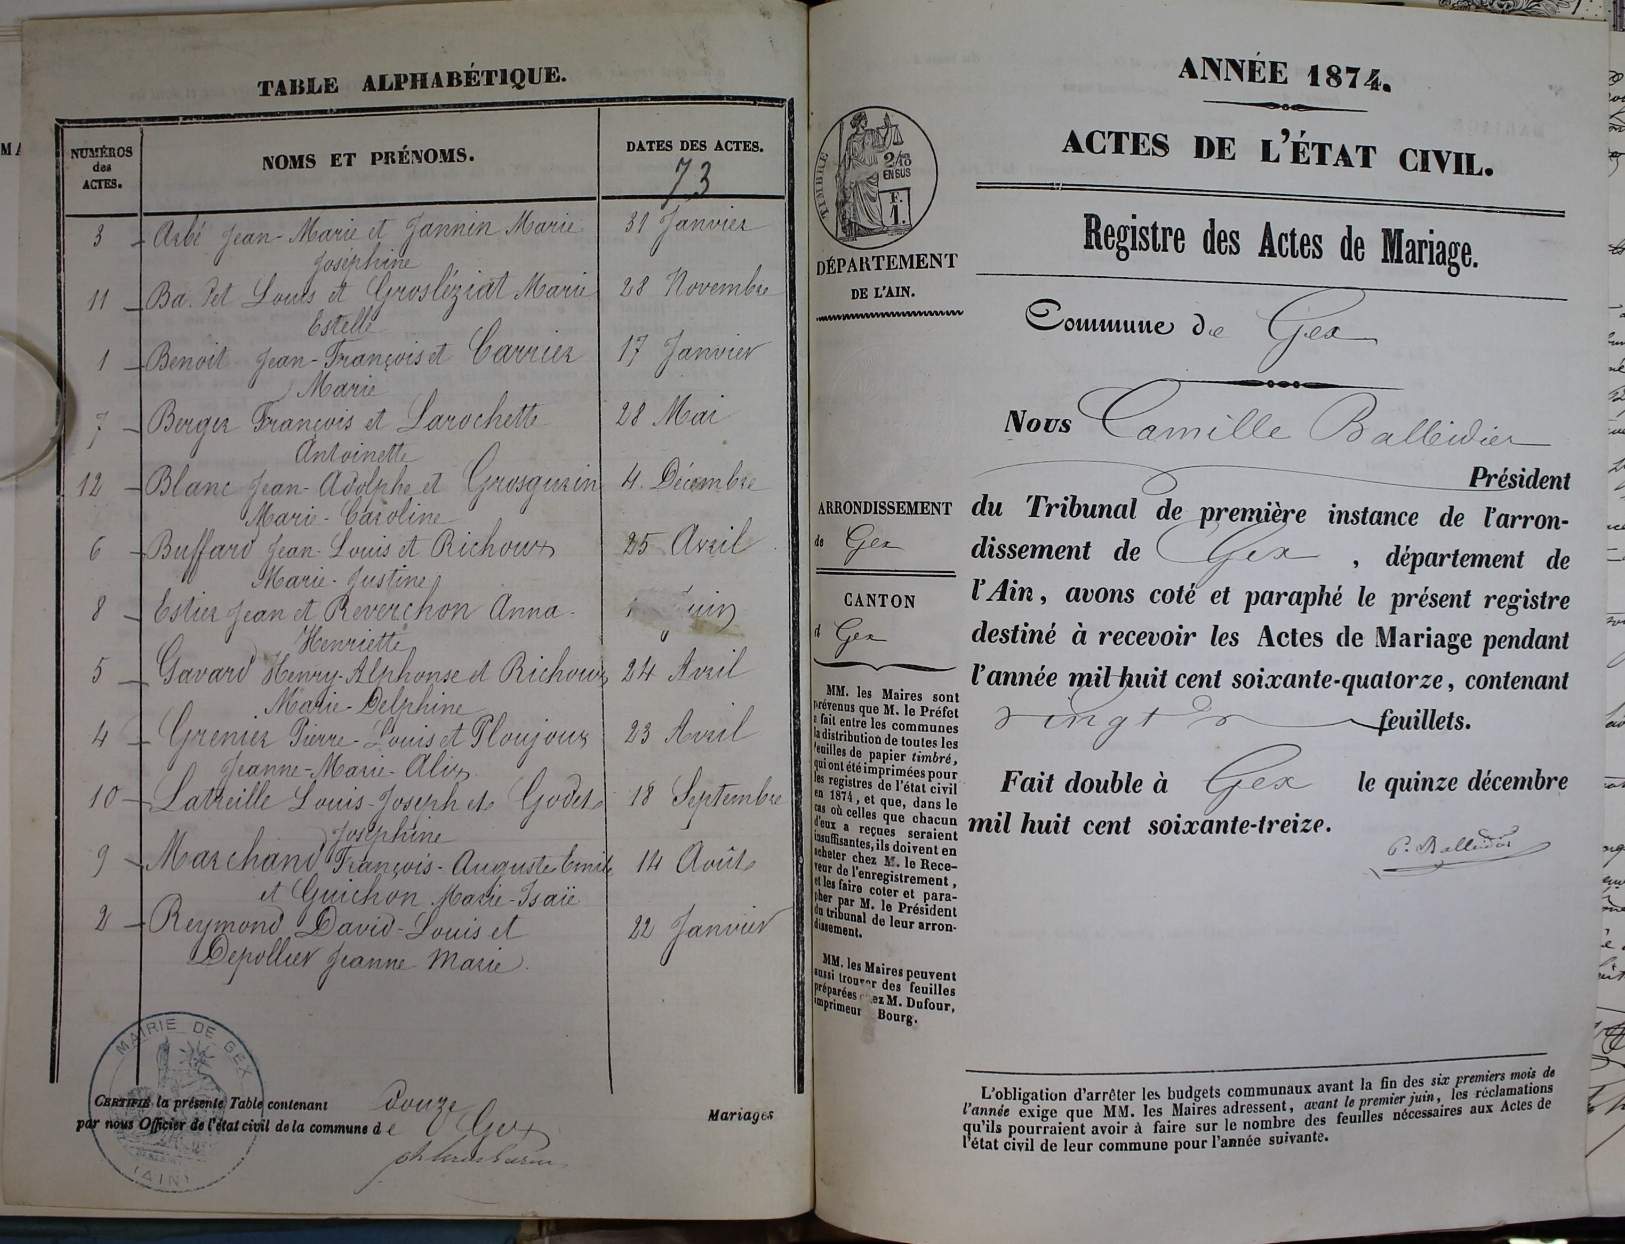 TABLE ALPHABÉTIQUE.
NUMÉROS
des
ACTES.
NOMS ET PRÉNOMS.
DATES DES ACTES.
73
3 Arbé Jean-Marie et Jannin Marie 31 Janvier
Joséphine
11 Ba. Pet Louis et Grosléziat Marie 28 Novembre
Estelle
1 Benoit Jean-François et Carrier 17 Janvier
Marie
7 Berger François et Larochette 28 Mai
Antoinette
12 Blanc Jean-Adolphe et Grosgurin 4 Décembre
Marie-Caroline
6 Buffard Jean-Louis et Richoux 25 Avril
Marie-Justine
8 Estier Jean et Reverchon Anna- Juin
Henriette
5 Gavard Henry-Alphonse et Richoux 24 Avril
Marie-Delphine
4 Grenier Pierre-Louis et Ploujoux 23 Avril
Jeanne-Marie-Alix
10 Latreille Louis-Joseph et Godet 18 Septembre
Joséphine
9 Marchand François-Auguste Emile 14 Août
et Guichon Marie-Isaïe
2 Reymond David-Louis et 22 Janvier
Depollier Jeanne Marie.
MAIRIE DE GEX
(AIN)
CERTIFIÉ la présente Table contenant douze Mariages
par nous Officier de l'état civil de la commune de Gex
ANNÉE 1874.
ACTES DE L'ÉTAT CIVIL.
TIMBRE
2/10
EN SUS
F.
1.
Registre des Actes de Mariage.
DÉPARTEMENT
DE L'AIN.
Commune de Gex
Nous Camille Balleidier
Président
du Tribunal de première instance de l'arron-
dissement de Gex, département de
l'Ain, avons coté et paraphé le présent registre
destiné à recevoir les Actes de Mariage pendant
l'année mil huit cent soixante-quatorze, contenant
vingt feuillets.
Fait double à Gex le quinze décembre
mil huit cent soixante-treize.
ARRONDISSEMENT
de Gex
CANTON
d Gex
MM. les Maires sont
prévenus que M. le Préfet
a fait entre les communes
la distribution de toutes les
feuilles de papier timbré,
qui ont été imprimées pour
les registres de l'état civil
en 1874, et que, dans le
cas où celles que chacun
d'eux a reçues seraient
insuffisantes, ils doivent en
acheter chez M. le Rece-
veur de l'enregistrement,
et les faire coter et para-
pher par M. le Président
du tribunal de leur arron-
dissement.
MM. les Maires peuvent
aussi trouver des feuilles
préparées chez M. Dufour,
imprimeur Bourg.
L'obligation d'arrêter les budgets communaux avant la fin des six premiers mois de
l'année exige que MM. les Maires adressent, avant le premier juin, les réclamations
qu'ils pourraient avoir à faire sur le nombre des feuilles nécessaires aux Actes de
l'état civil de leur commune pour l'année suivante.